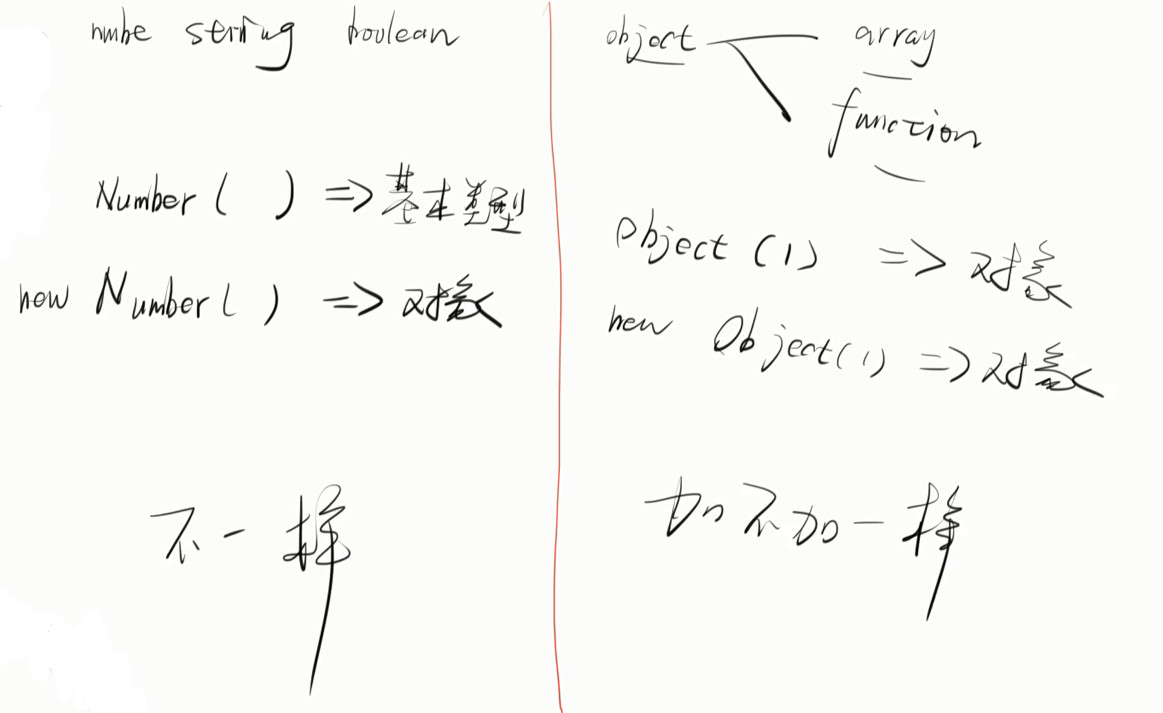 nmbe string boolean
Number ( ) => 基本类型
new Number ( ) => 对象
不一样
object array
function
Object (1) => 对象
new Object (1) => 对象
加不加一样